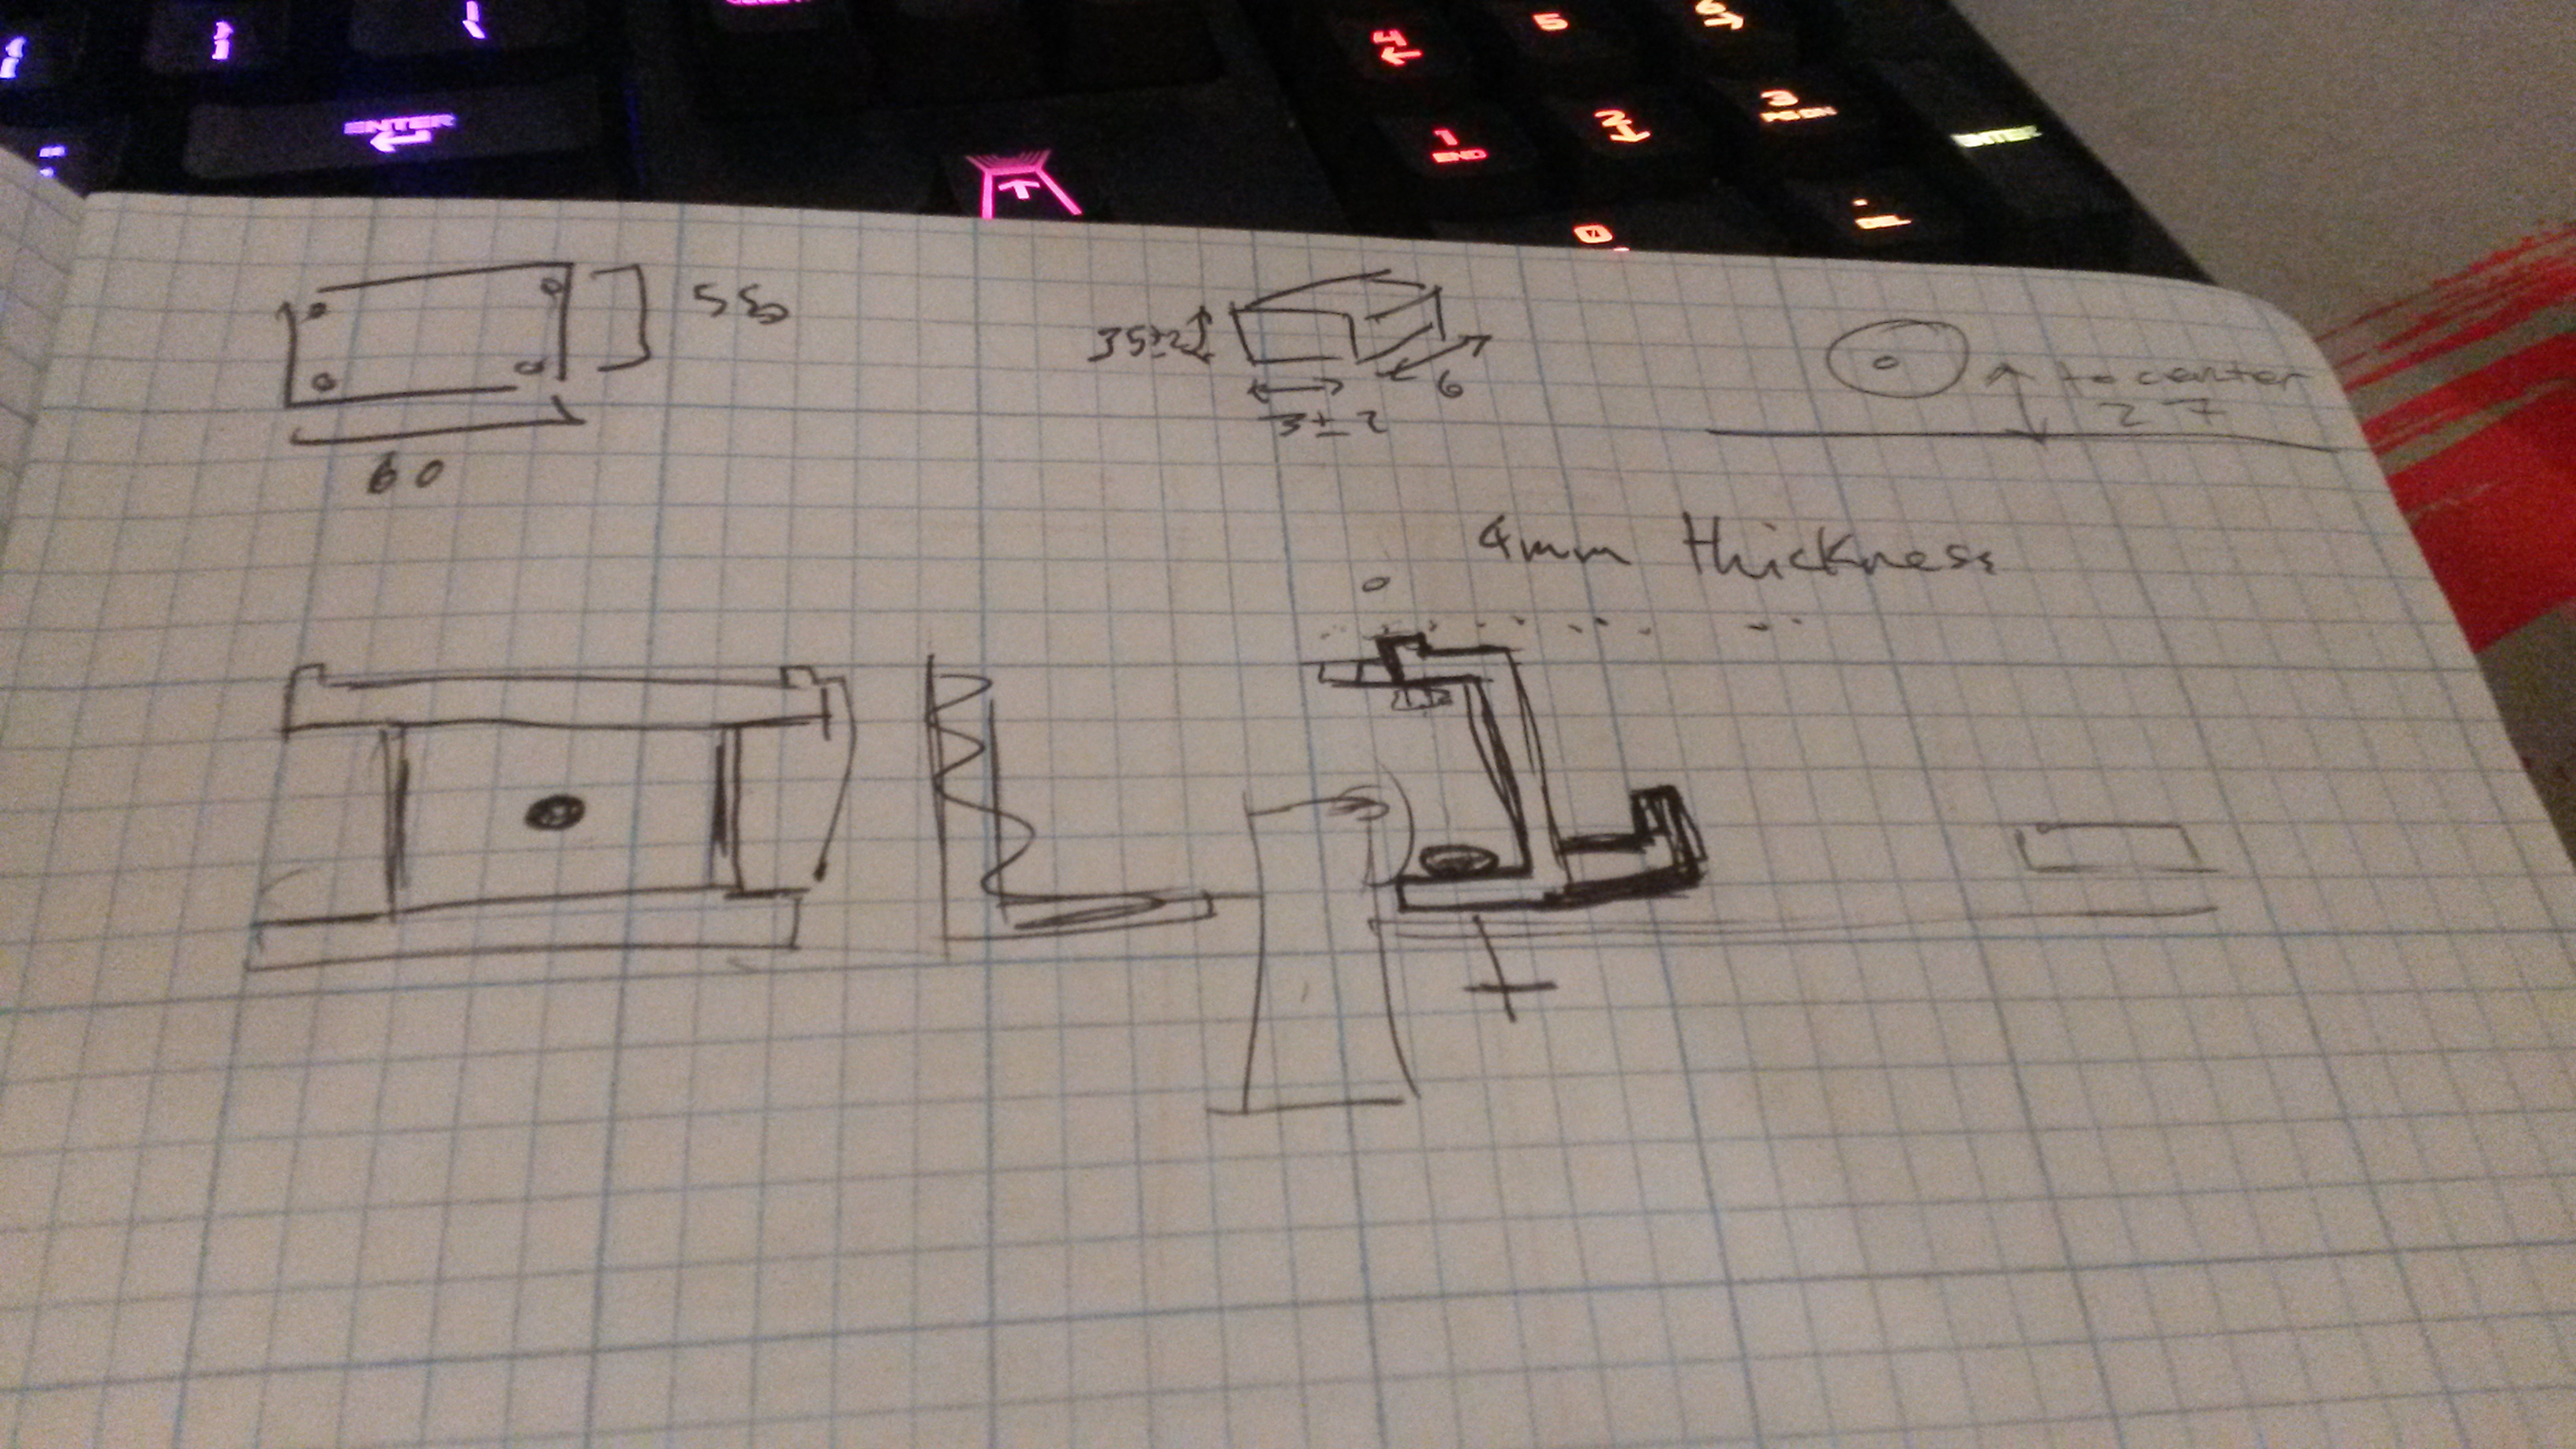 4
5
6
ENTER
1
END
2
3
PGDN
ENTER
0
.
DEL
60
35±2
3±2
6
to center
27
4mm thickness